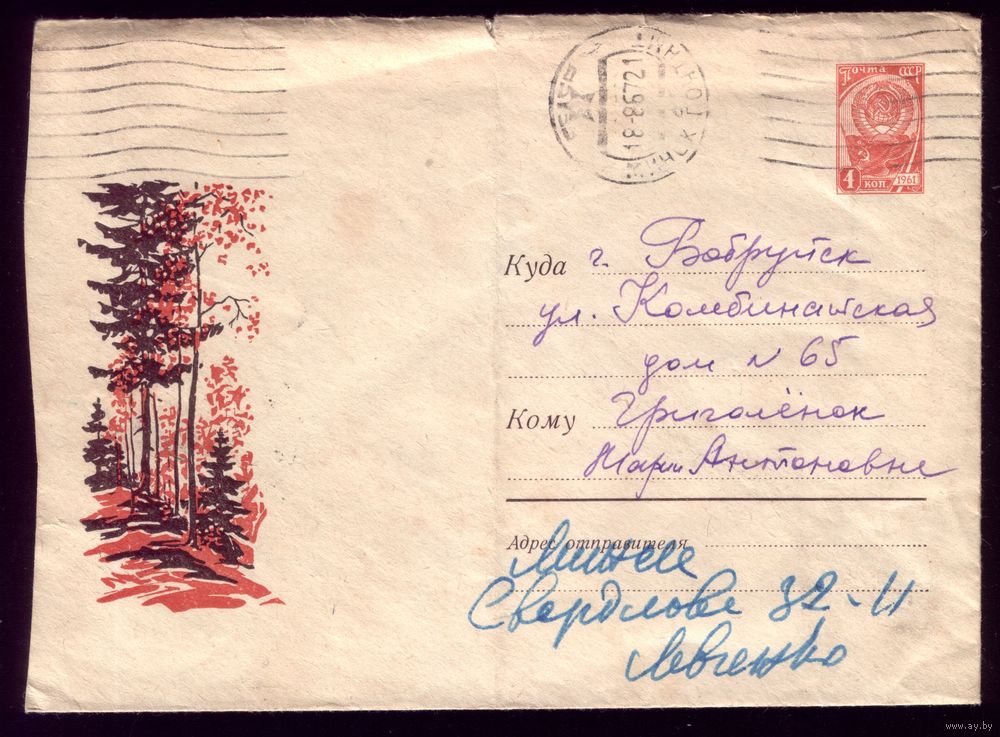 Почта СССР
4 коп 1961
18-8672 1
Куда г. Бобруйск
ул. Комбинатская
дом N 65
Кому Григолёнок
Марии Антоновне
Адрес отправителя
Минск
Свердлова 32-11
Левченко
www.ay.by